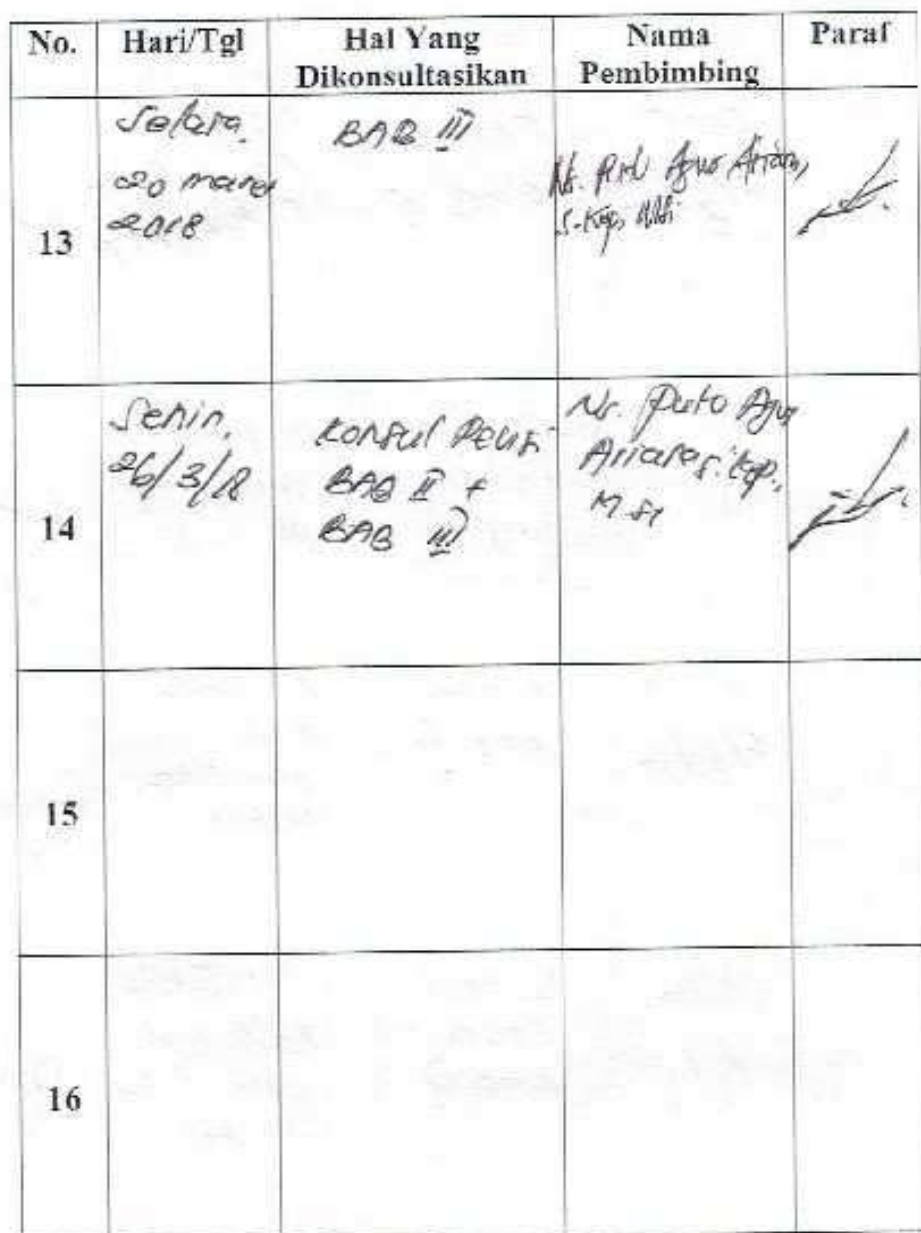 No. Hari/Tgl Hal Yang Dikonsultasikan Nama Pembimbing Paraf
13
Selasa,
20 maret
2018
BAB III
Ns. Putu Agus Ariana,
S.Kep, MSi
14
Senin,
26/3/18
Konsul Revisi
BAB II +
BAB III
Ns. Putu Agus
Ariana S.Kep.,
M.Si
15
16